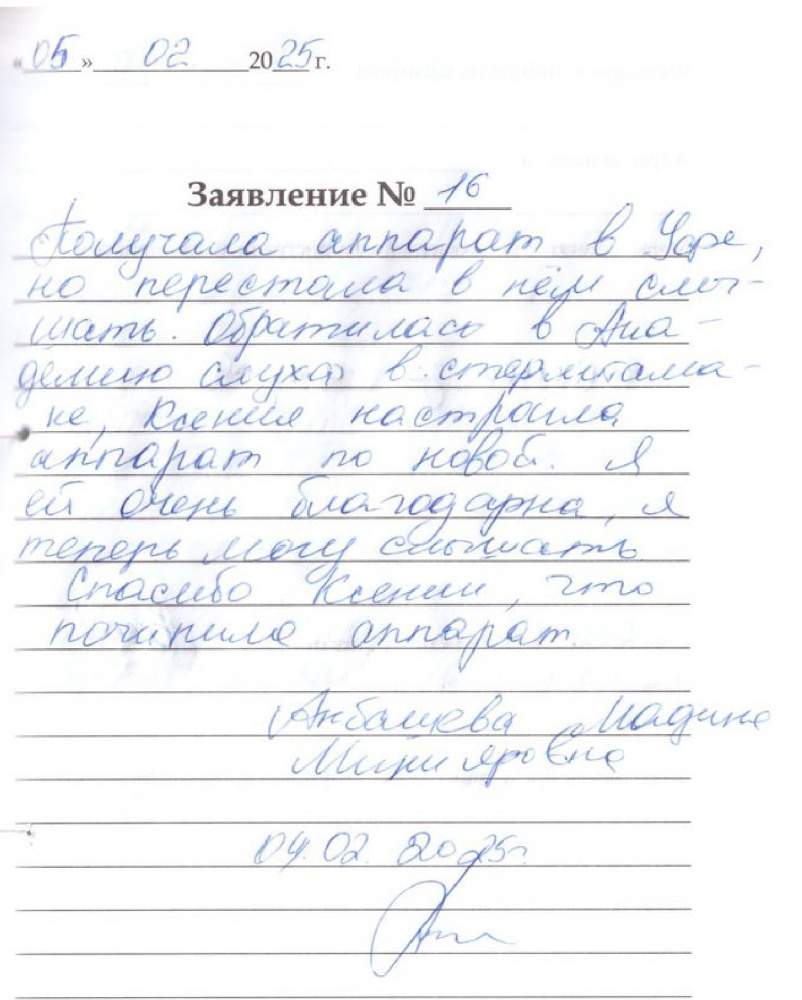 «05» 02 2025 г.
Заявление № 16
Получала аппарат в Уфе,
но перестала в нём слы-
шать. Обратилась в Ака-
демию слуха в стерлитама-
ке, Ксения настроила
аппарат по новой. Я
ей очень благодарна, я
теперь могу слышать
Спасибо Ксении, что
починила аппарат.
Мадина
Минияровна
04.02.2025г.